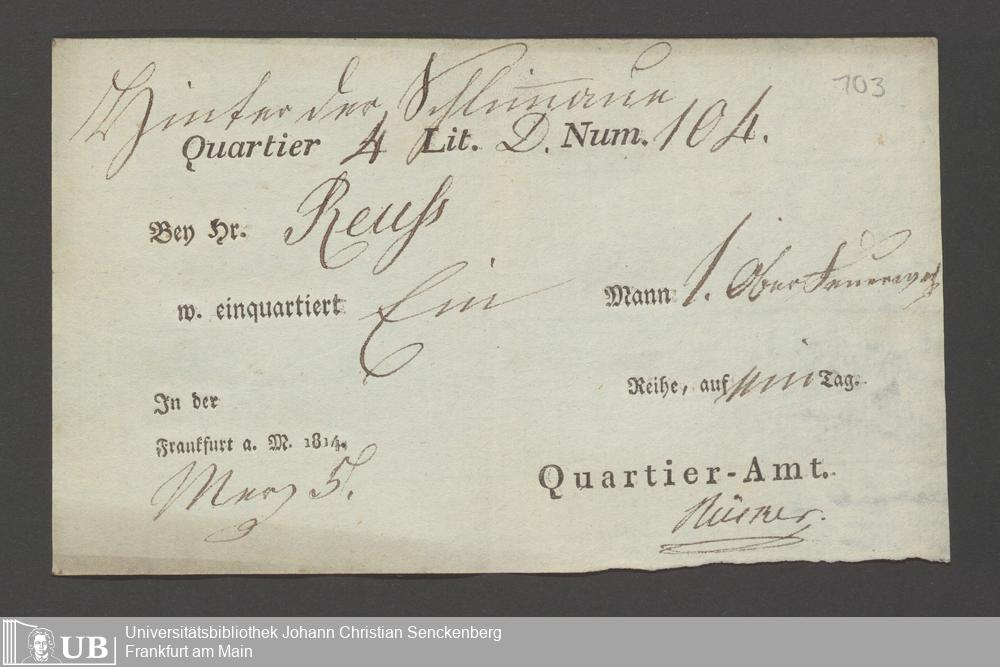 Hinter der Schlimmaue
103
Quartier 4 Lit. D. Num. 104.
Bey Hr. Reuss
w. einquartiert Ein Mann 1. Ober Feuerw
In der Reihe, auf ein Tag.
Frankfurt a. M. 1814.
Merz 5.
Quartier-Amt.
UB Universitätsbibliothek Johann Christian Senckenberg
Frankfurt am Main